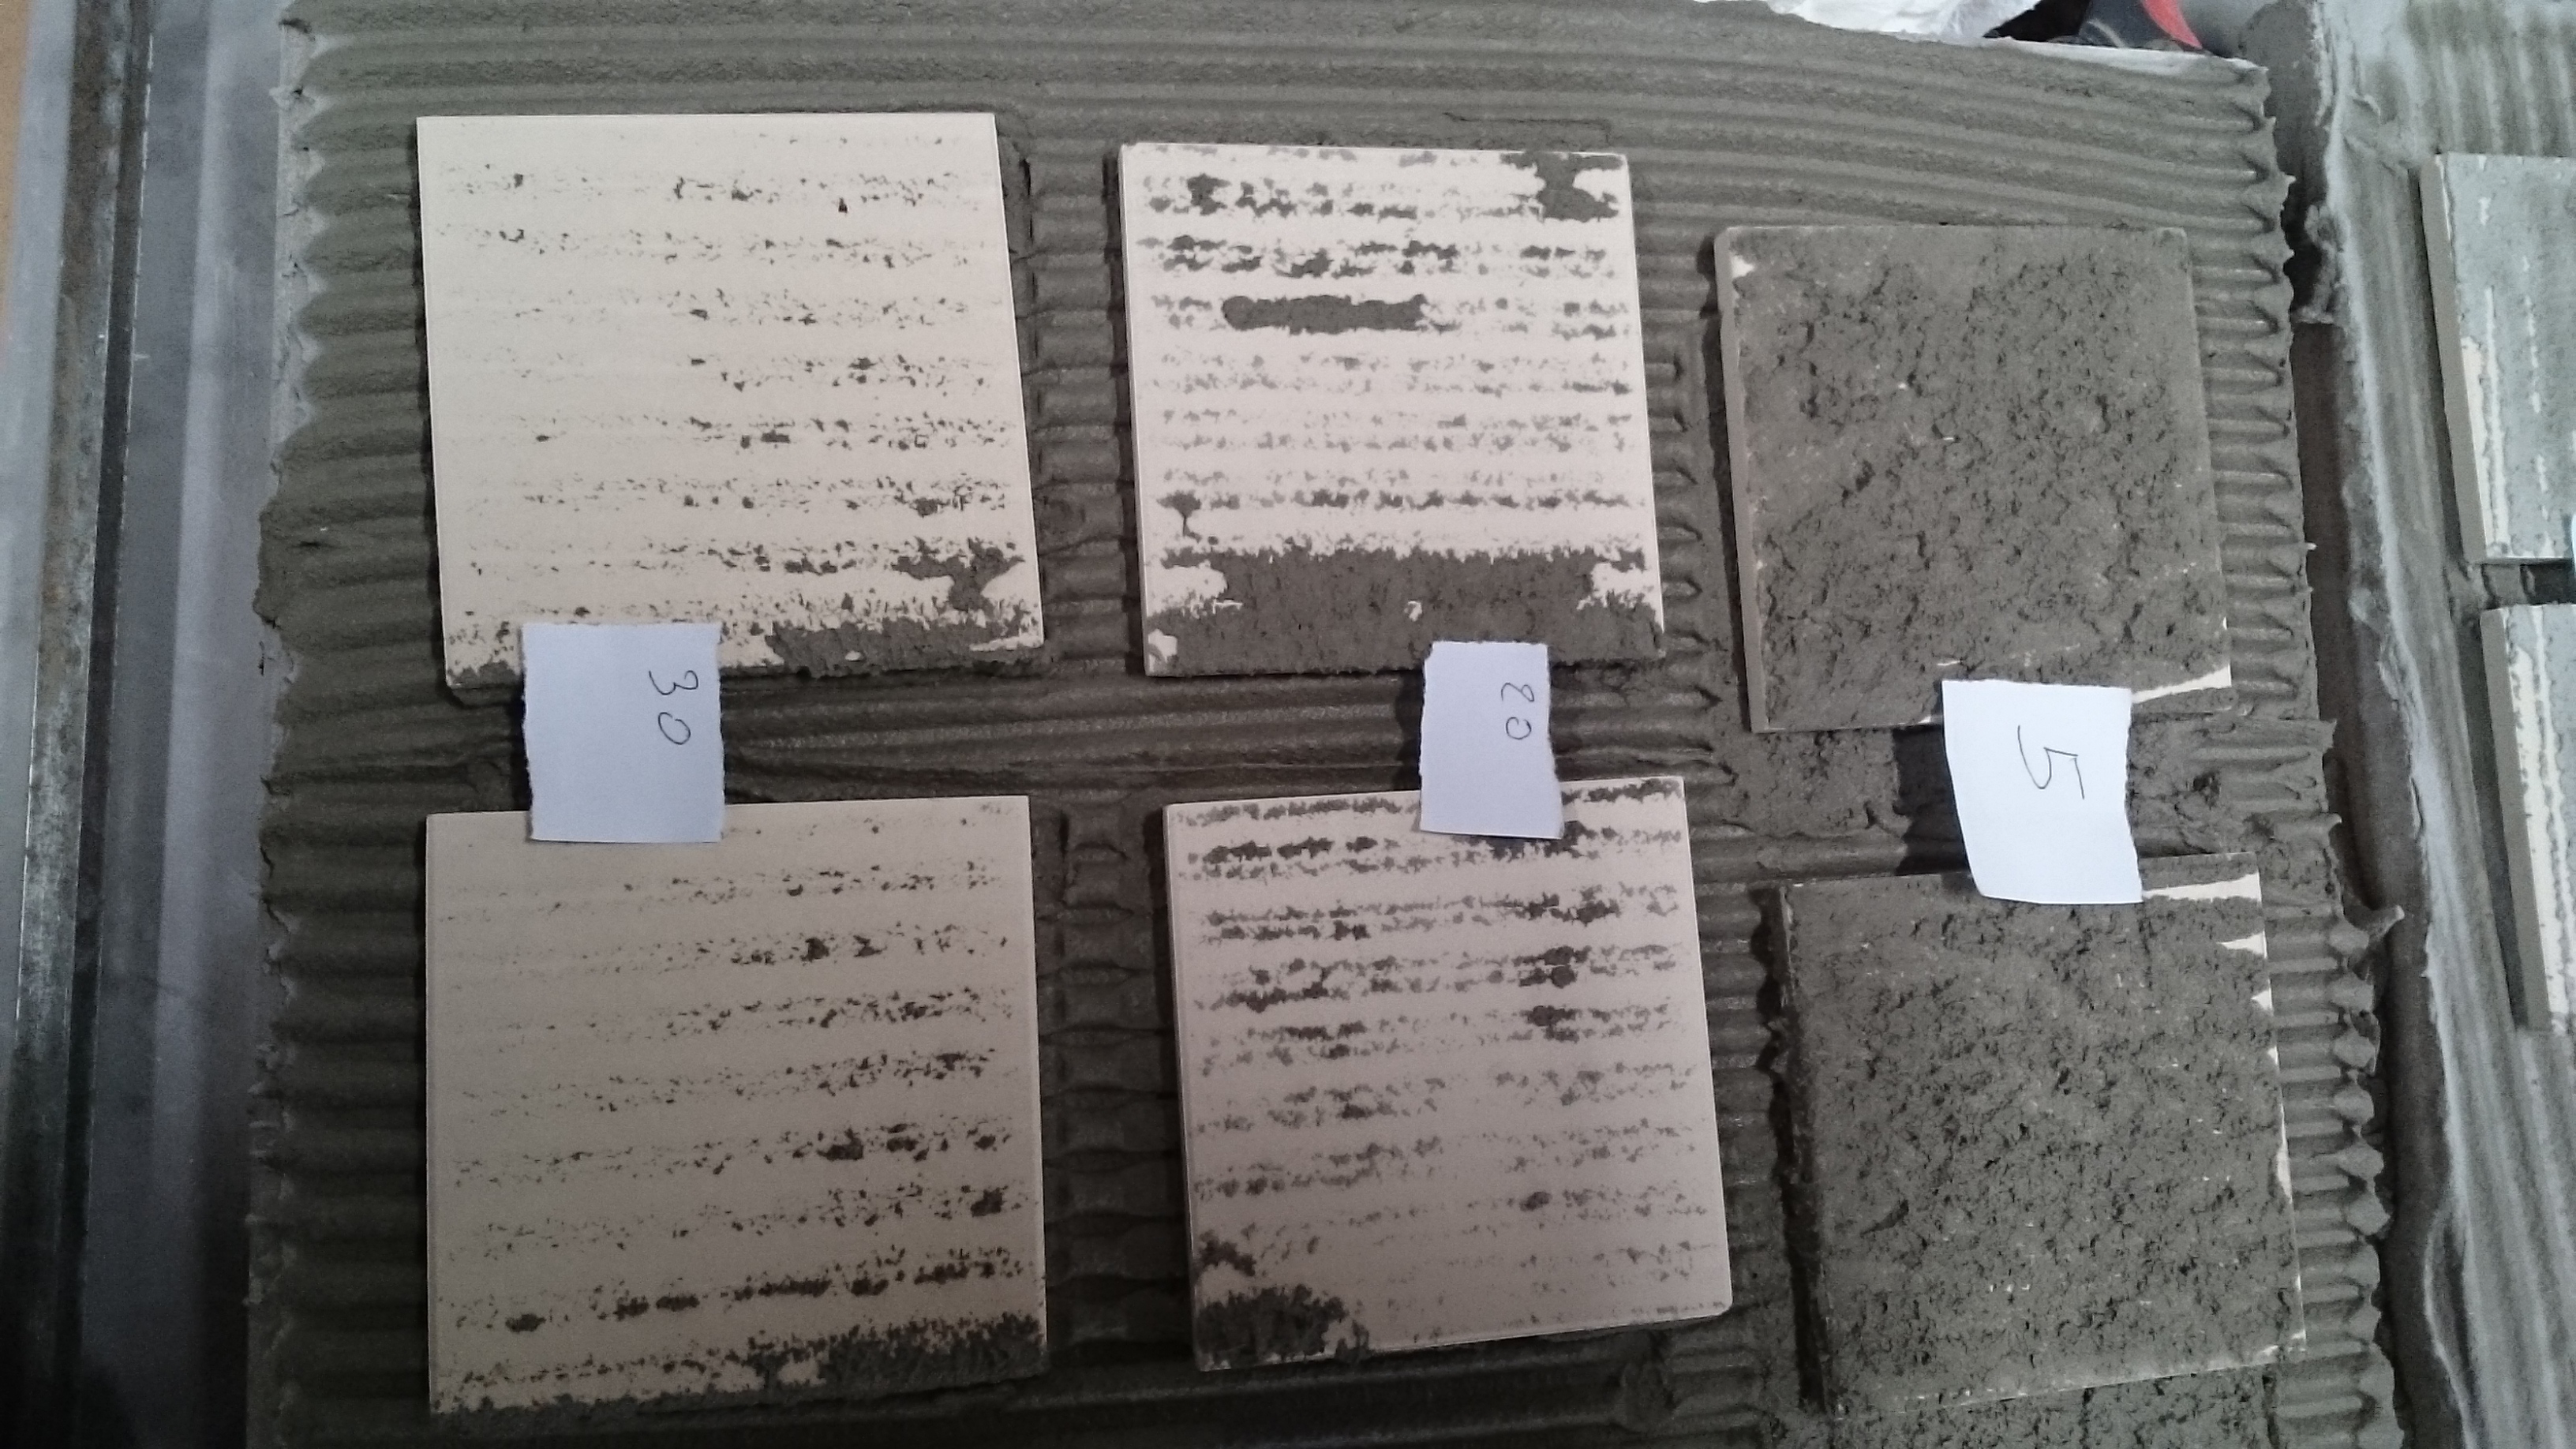 30
20
5